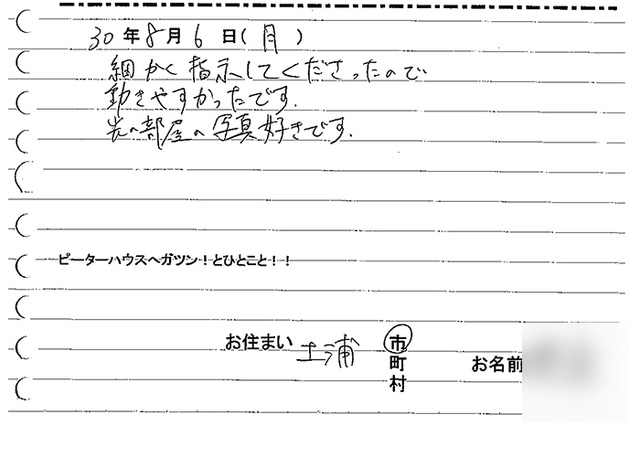 30年8月6日(月)
細かく指示してくださったので
動きやすかったです.
光の部屋の写真好きです.
ピーターハウスへガツン!とひとこと!!
お住まい 土浦 市
町
村
お名前